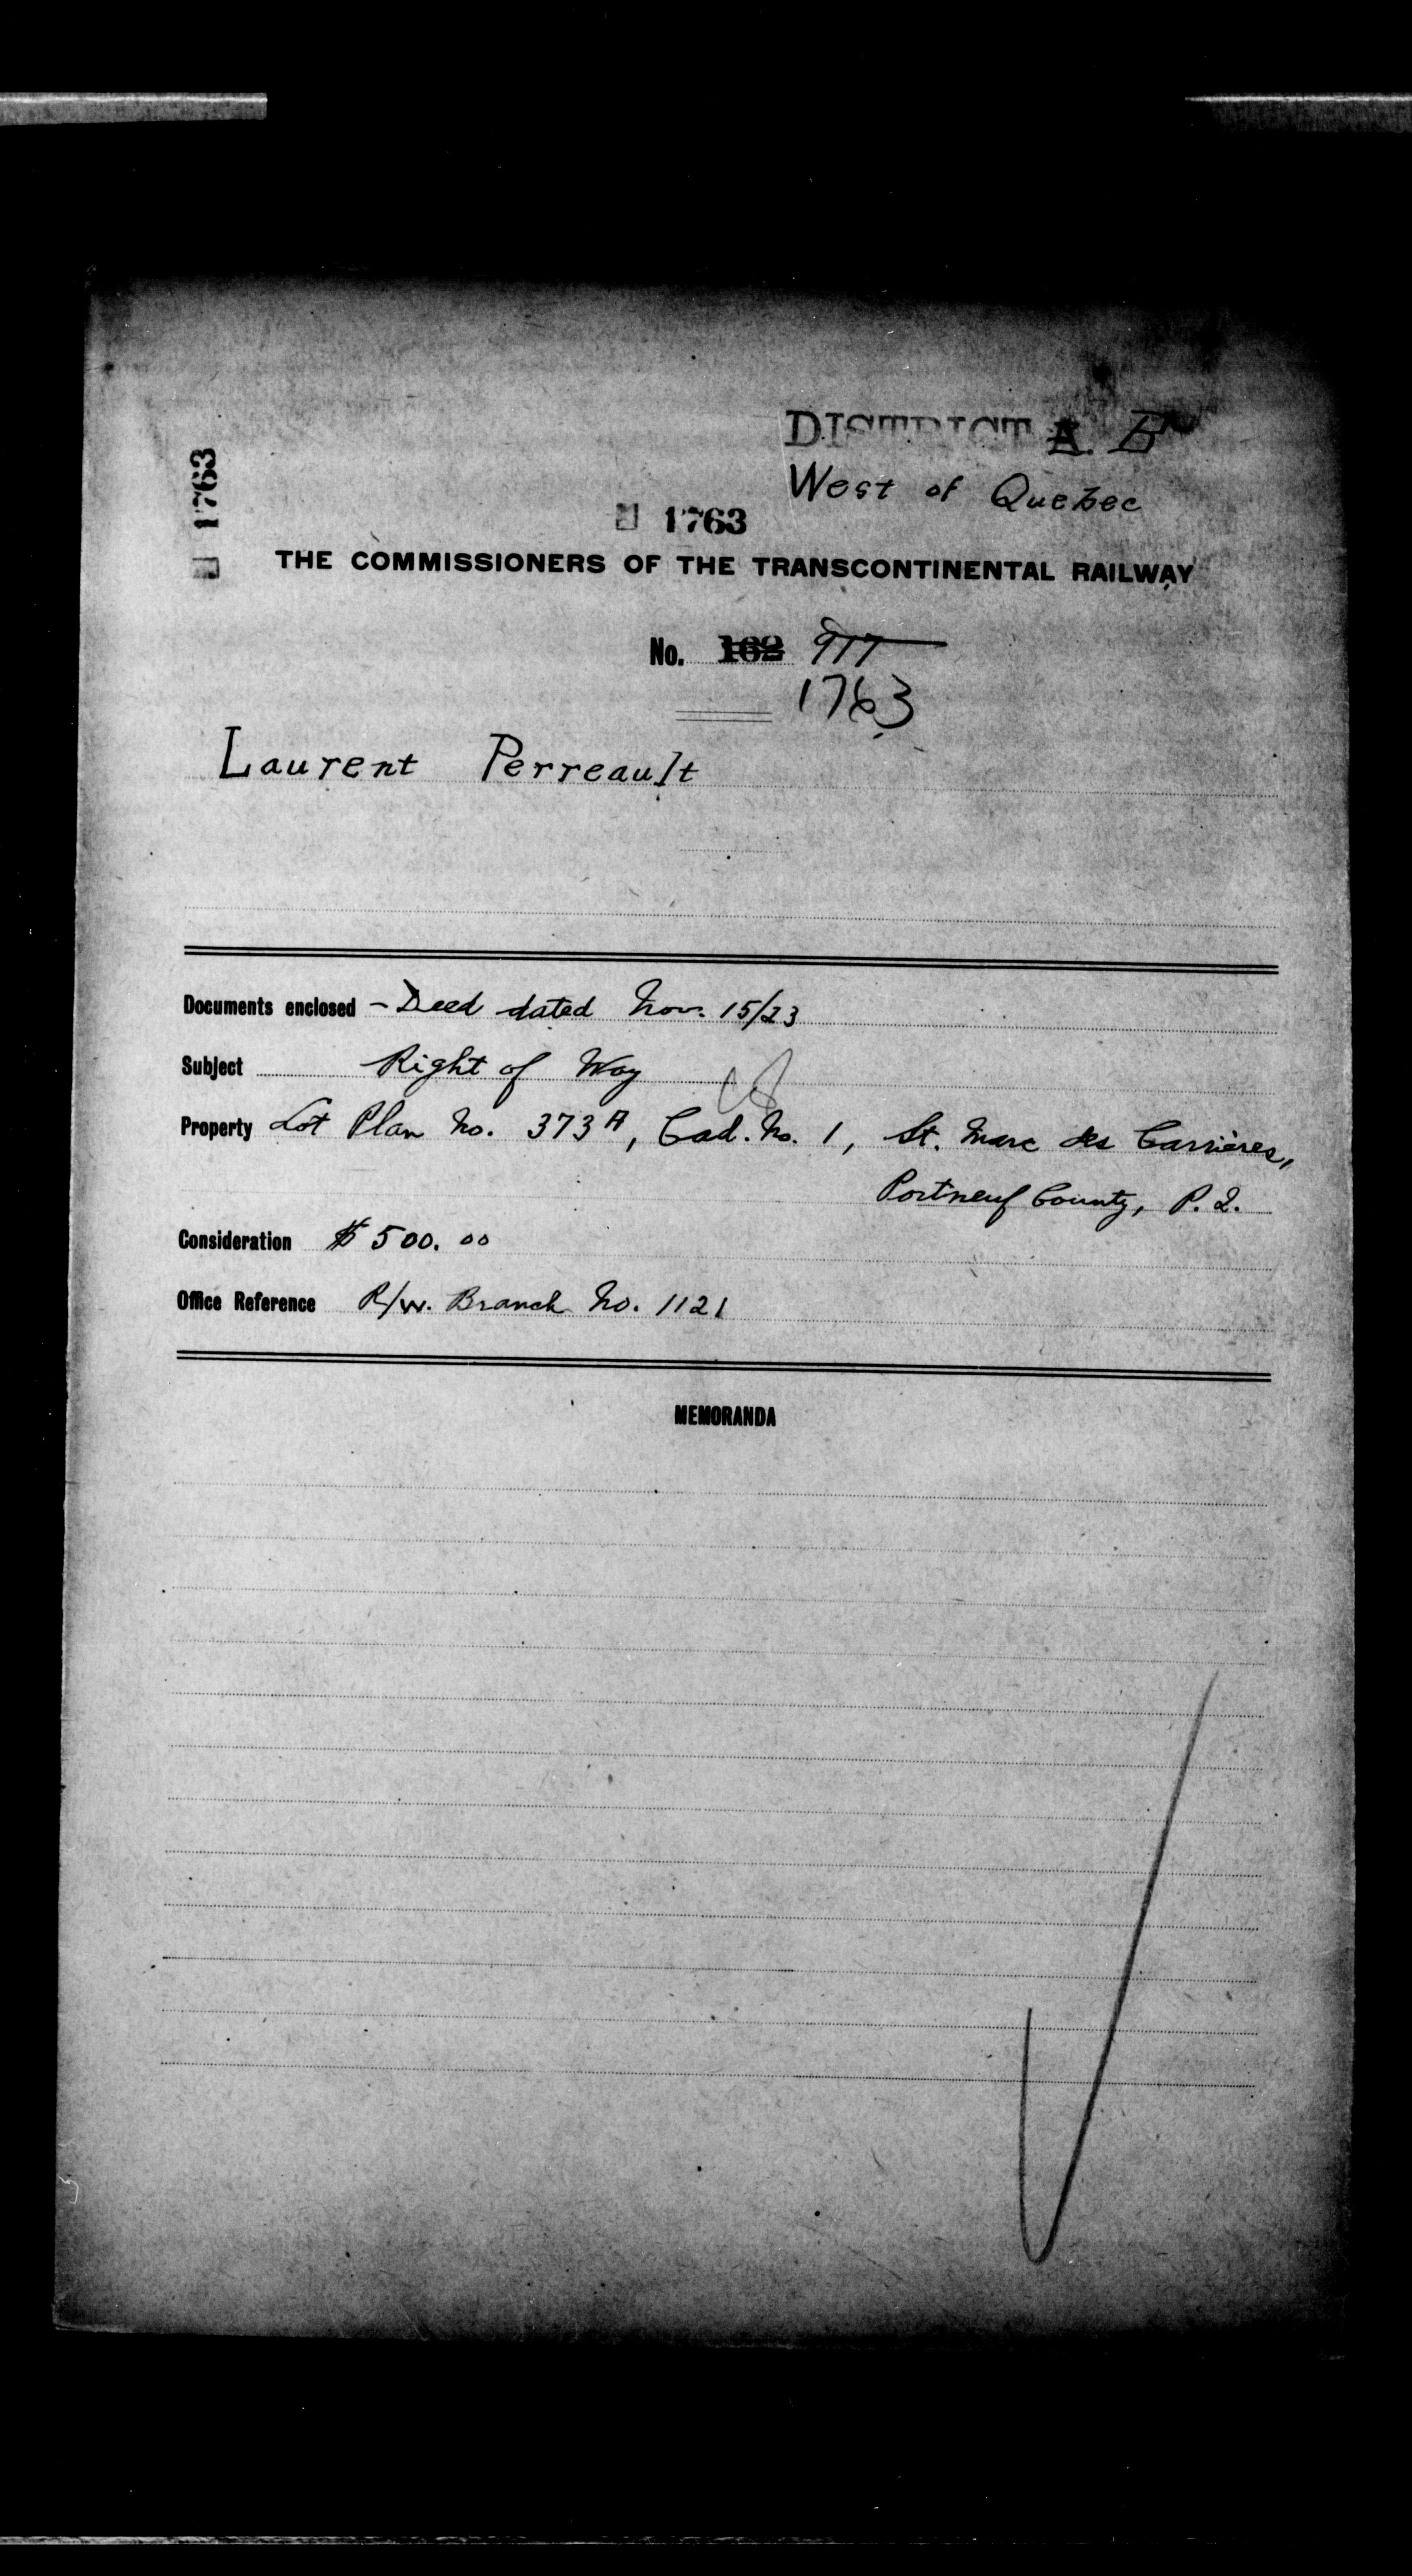 DISTRICT A. B
West of Quebec
1763
1763
THE COMMISSIONERS OF THE TRANSCONTINENTAL RAILWAY
No. 162 917
1763
Laurent Perreault
Documents enclosed - Deed dated Nov. 15/23
Subject Right of Way
Property Lot Plan No. 373A, Cad. No. 1, St. Marc des Carrières,
Portneuf County, P.Q.
Consideration $500.00
Office Reference R/W. Branch No. 1121
MEMORANDA